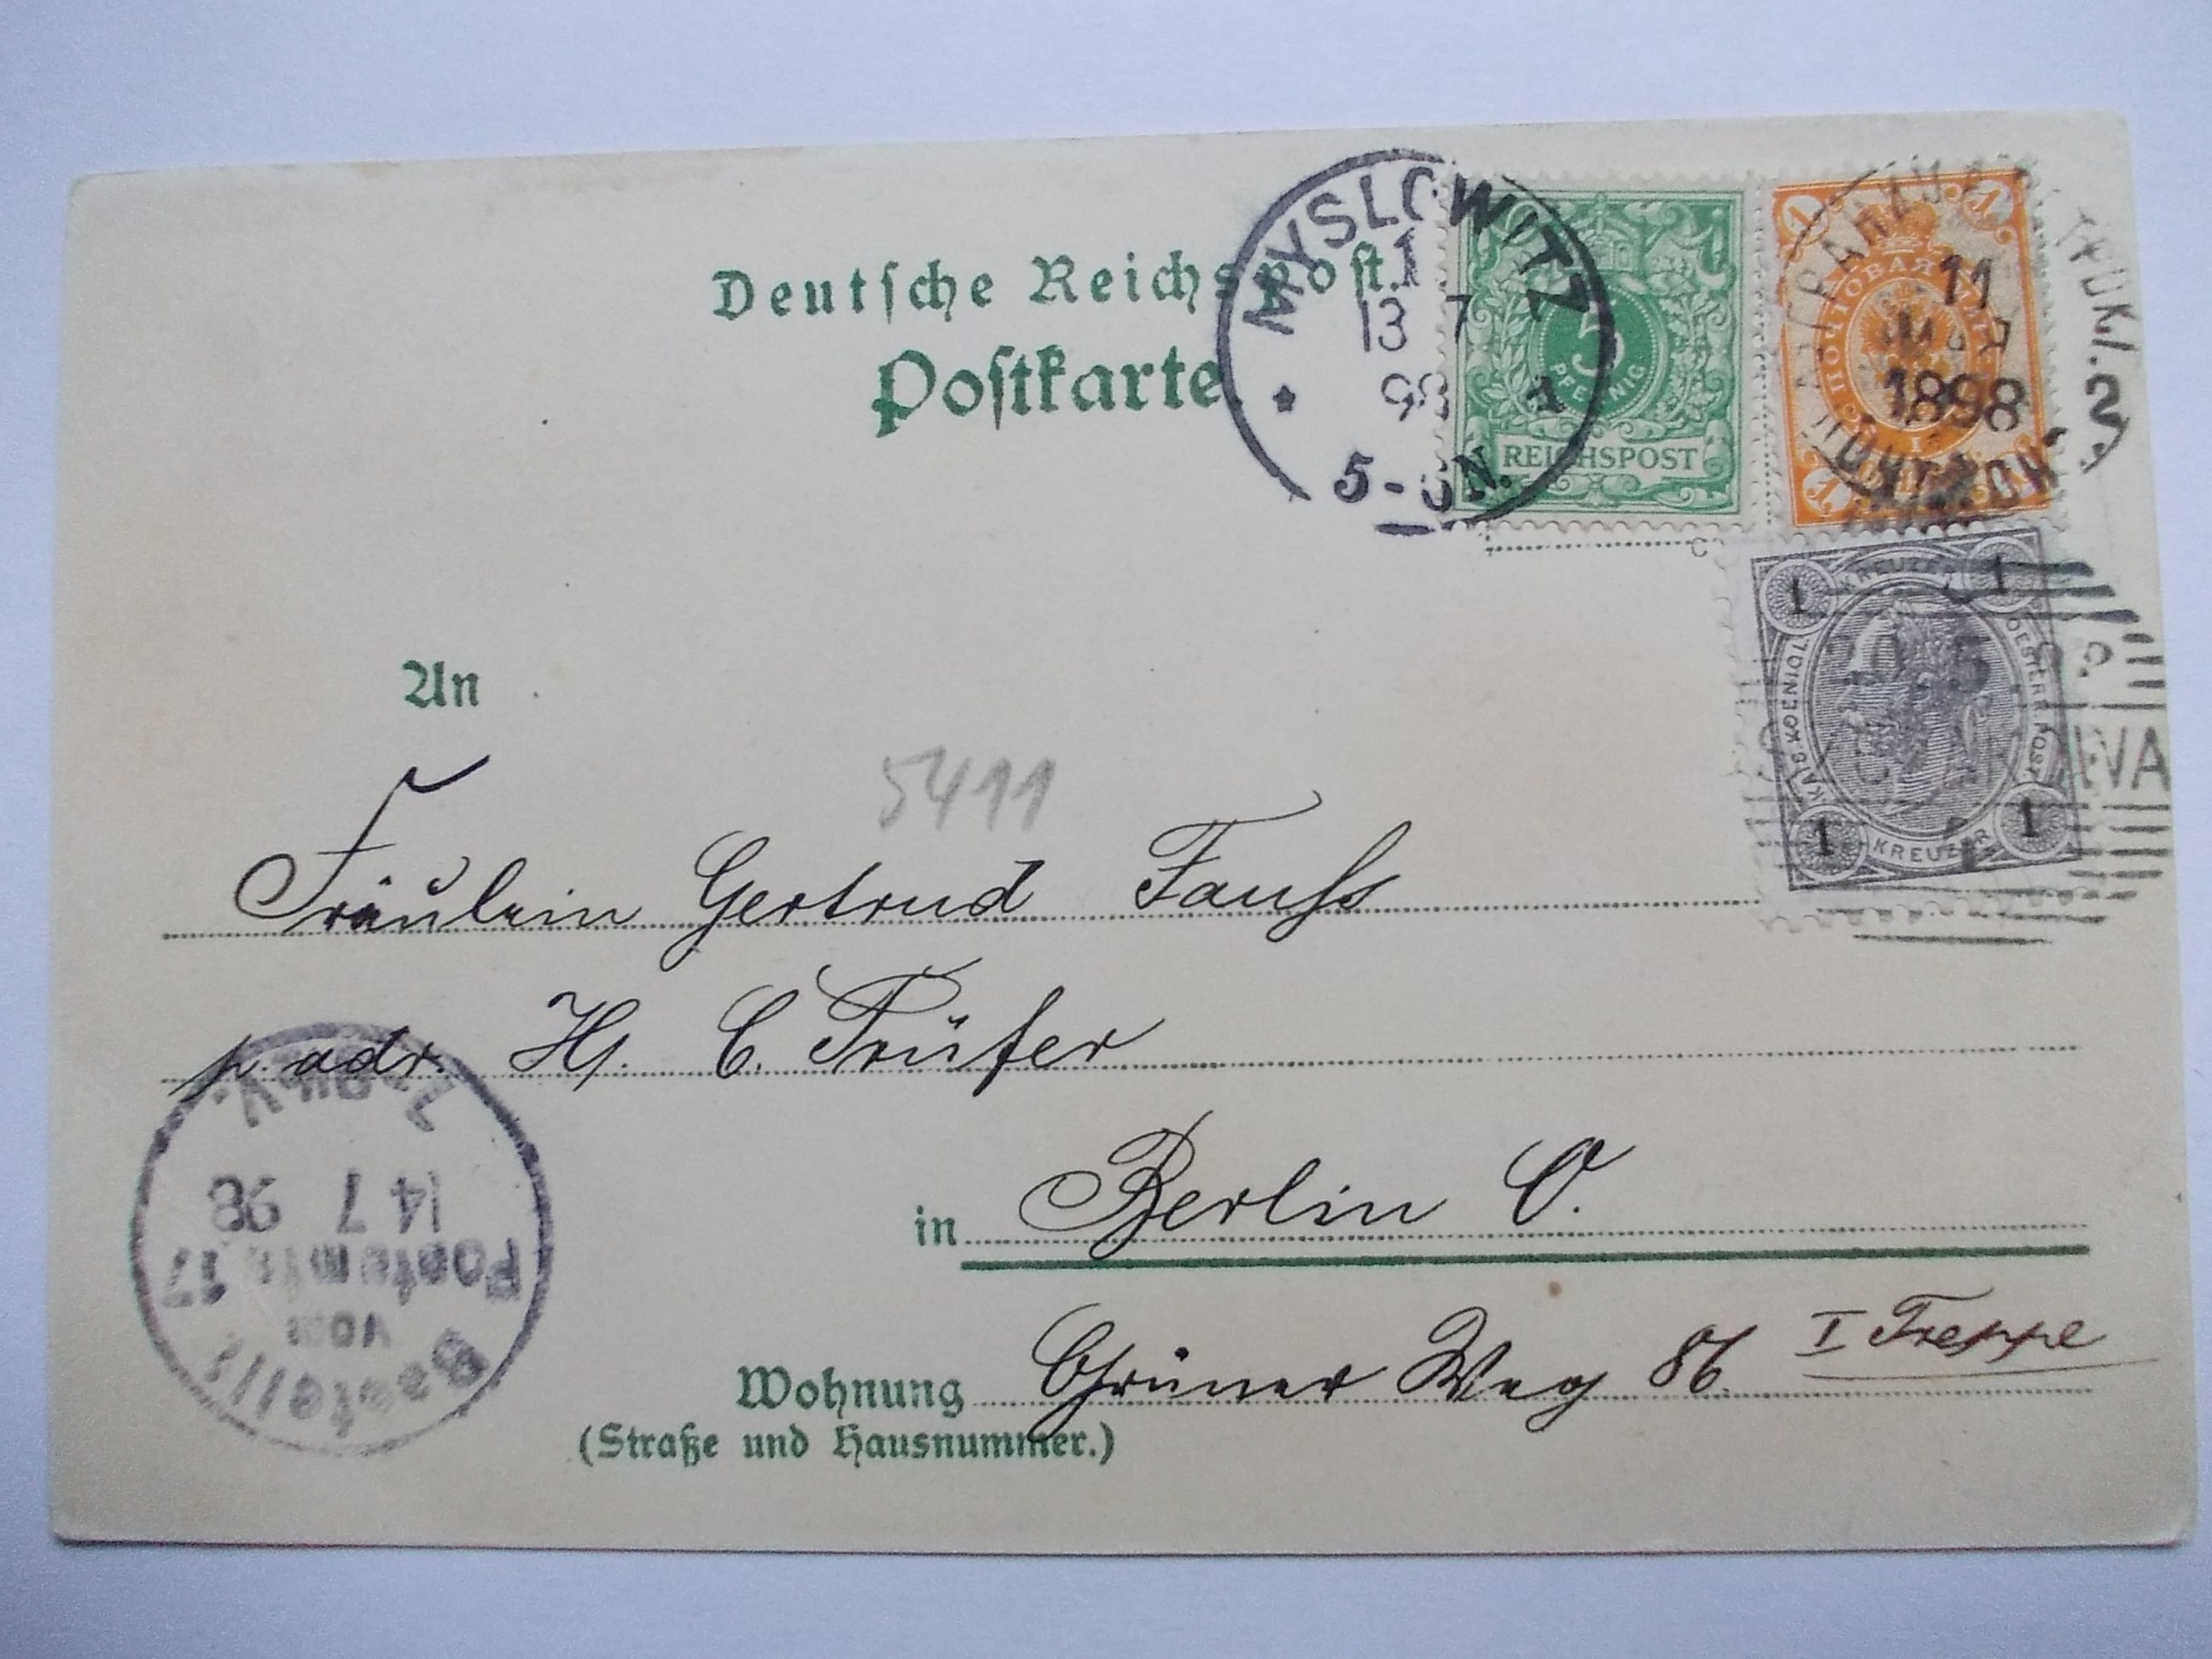 Deutsche Reichspost.
Postkarte
MYSLOWITZ
1
13 7
98
5-6N.
5
PFENNIG
REICHSPOST
1 1
ПОЧТОВАЯ
11
1898
1 1
2
1 KREUZER 1
KAIS. KOENIGL. OESTERR. POST
1 KREUZER 1
An
5411
Fräulein Gertrud
p. adr. H. C. Trüfer
in Berlin O.
Wohnung Grüner Weg 86. I Treppe
(Straße und Hausnummer.)
Bestellt
vom
Postamte 27
14 7 98